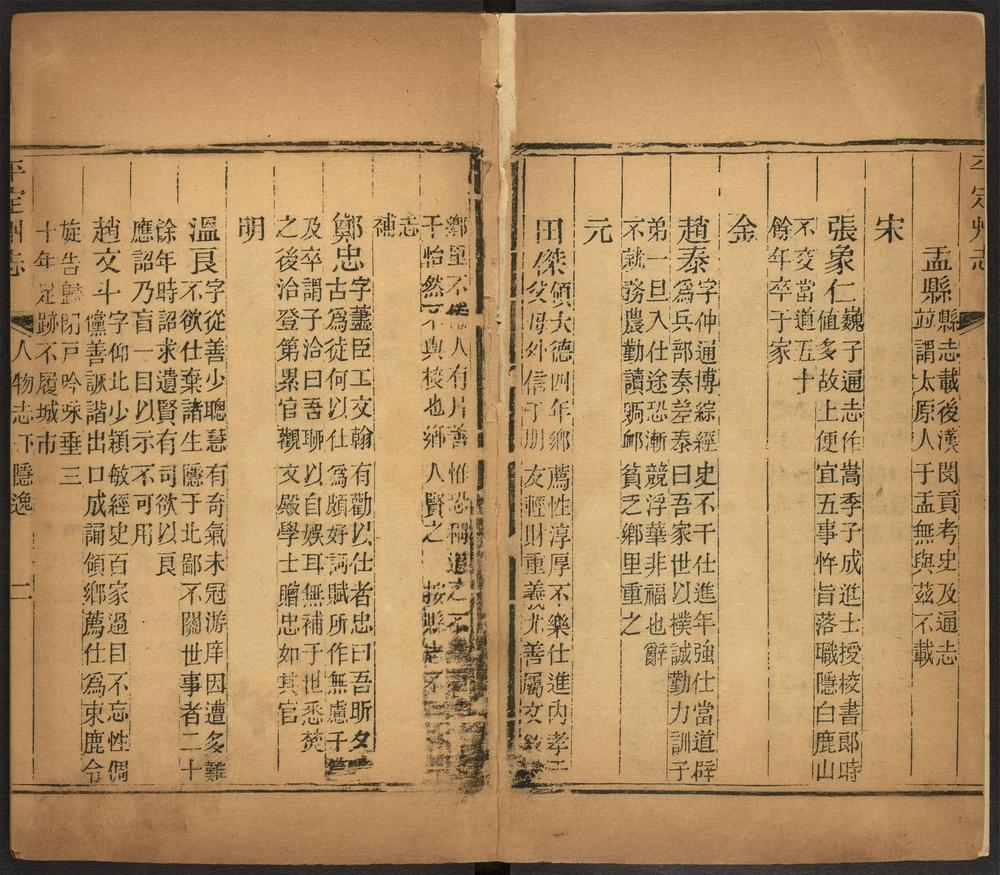 平定州志
盂縣縣志載後漢閔貢考史及通志
並謂太原人于盂無與茲不載
宋
張象仁魏子通志作嵩季子成進士授校書郎時
值多故上便宜五事忤旨落職隱白鹿山
不交當道五十
餘年卒于家
金
趙泰字仲通博綜經史不干仕進年強仕當道辟
為兵部奏差泰曰吾家世以樸誠勤力訓子
弟一旦入仕途恐漸競浮華非福也辭
不就務農勤讀賙䘏貧乏鄉里重之
元
田傑領大德四年鄉薦性淳厚不樂仕進內孝于
父母外信于朋友輕財重義尤善屬文
鄉里不倦人有片善惟恐稱道之不
干怡然不與校也鄉人賢之 按縣志不
志
補
鄭忠字藎臣工文翰有勸以仕者忠曰吾昕夕
古為徒何以仕為頗好詞賦所作無慮千篇
及卒謂子洽曰吾聊以自娛耳無補于世悉焚
之後洽登第累官觀文殿學士贈忠如其官
明
溫良字從善少聰慧有奇氣未冠游庠因遭多難
不欲仕棄諸生隱于北鄙不關世事者二十
餘年時詔求遺賢有司欲以良
應詔乃盲一目以示不可用
趙文斗字仰北少穎敏經史百家過目不忘性倜
儻善詼諧出口成誦領鄉薦仕為東鹿令
旋告歸閉戶吟咏垂三
十年足跡不履城市
平定州志 人物志下 隱逸 二